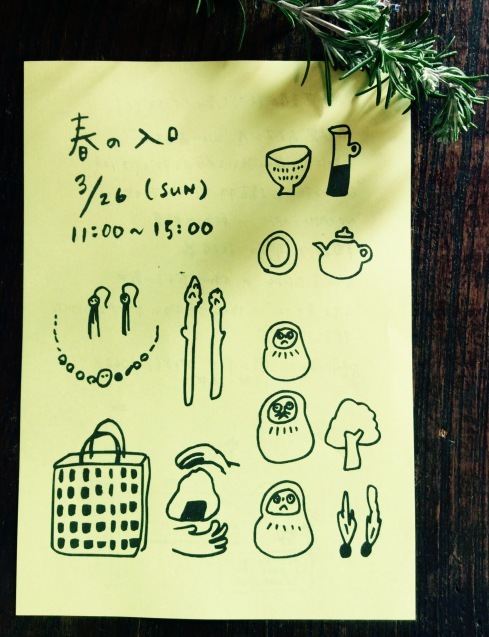 春の入口
3/26 (SUN)
11:00~15:00